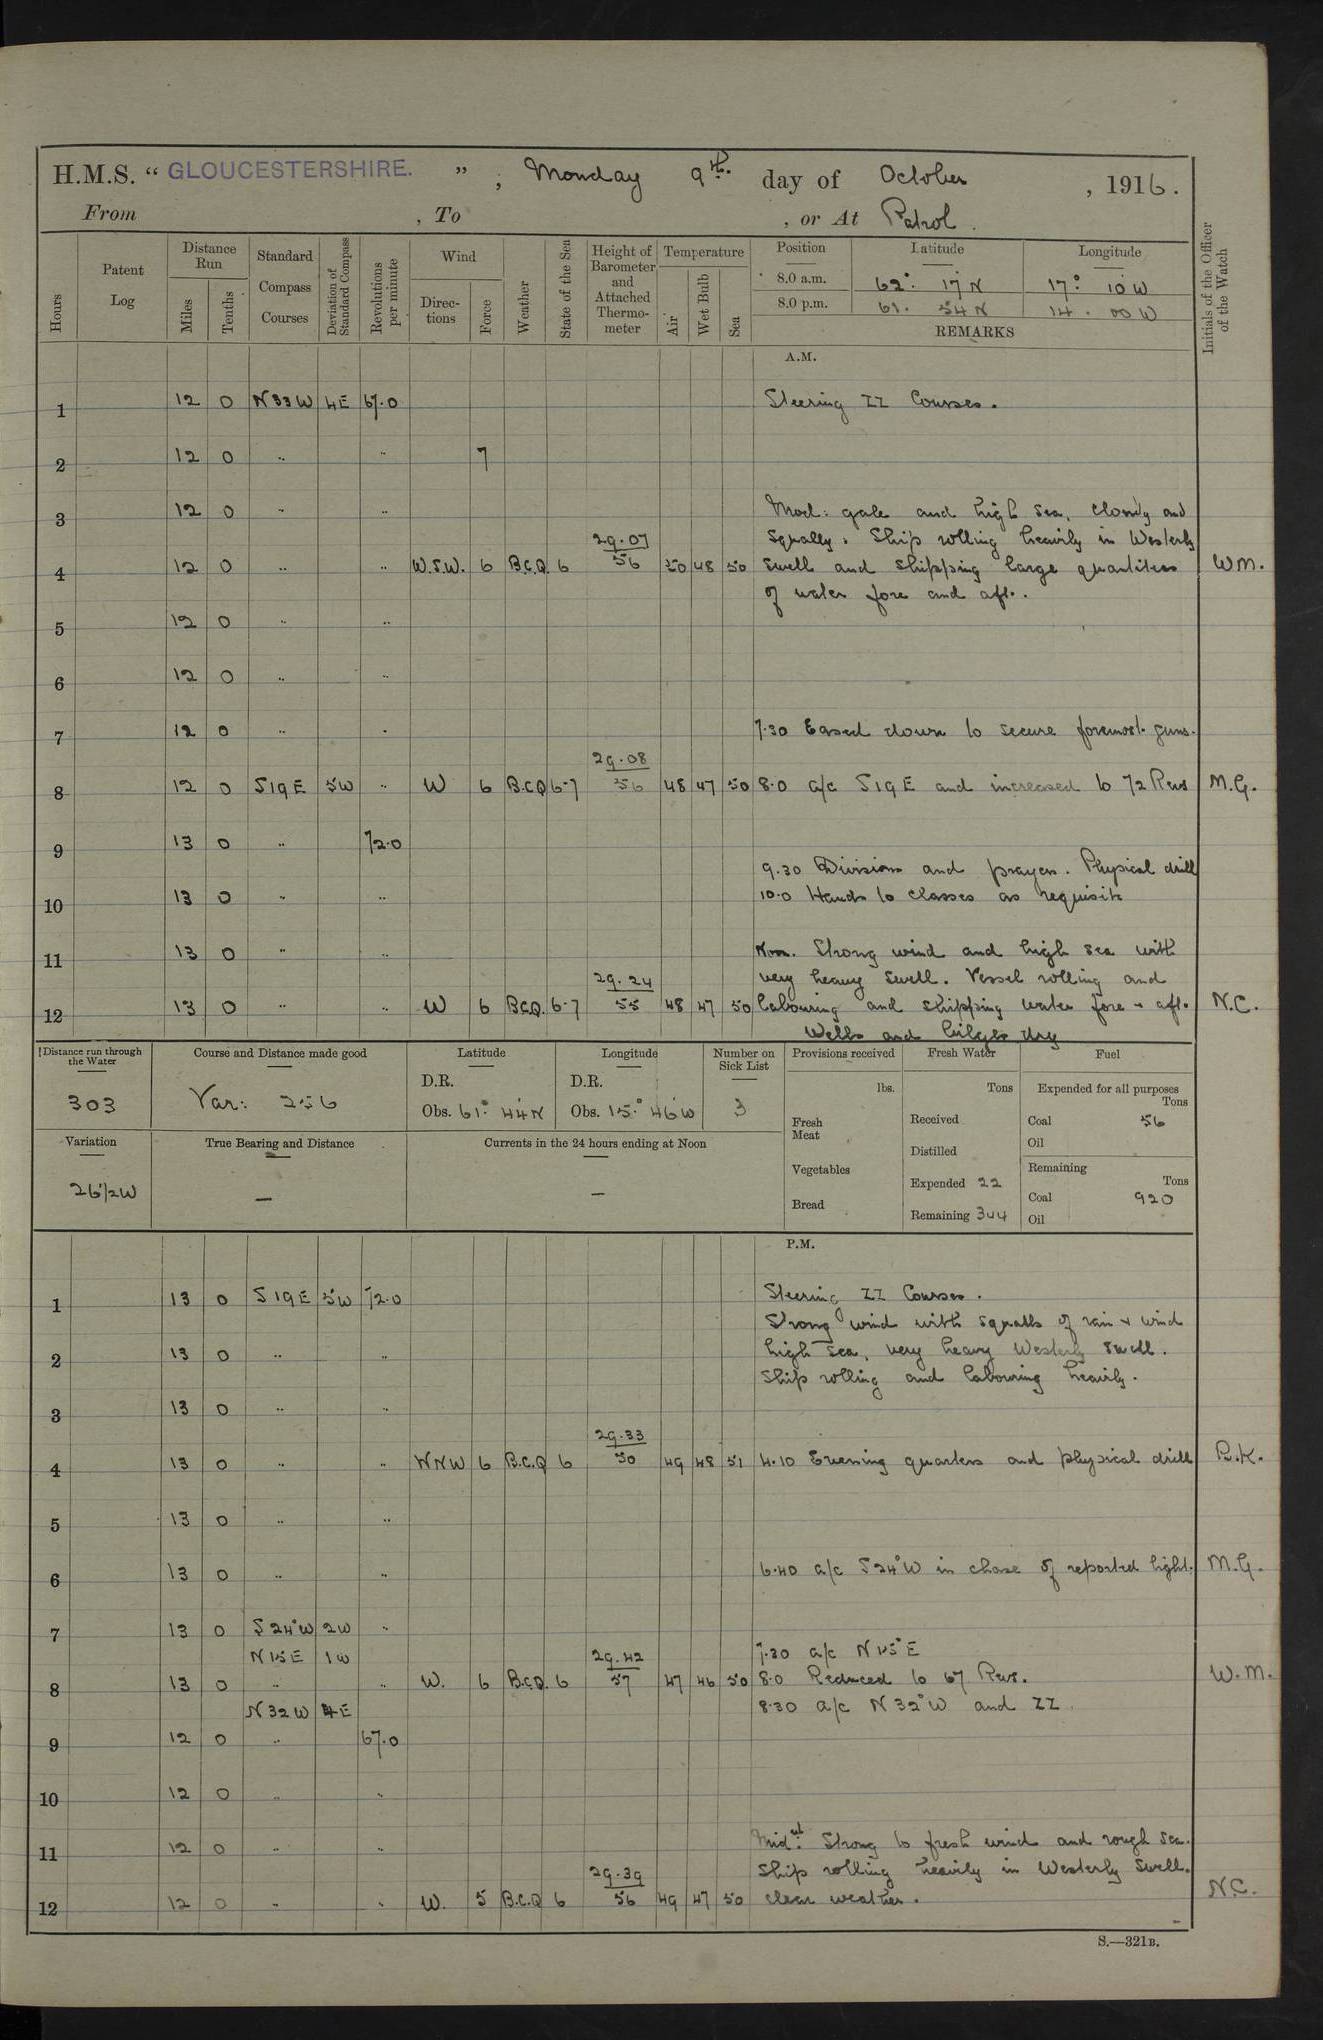 H.M.S. “ GLOUCESTERSHIRE. ” , Monday 9th. day of October , 1916.
From , To , or At Patrol.
Hours Patent Log Distance Run Miles Tenths Standard Compass Courses Deviation of Standard Compass Revolutions per minute Wind Directions Force Weather State of the Sea Height of Barometer and Attached Thermometer Temperature Air Wet Bulb Sea Position Latitude Longitude Initials of the Officer of the Watch
8.0 a.m. 62° 17' N 17° 10' W
8.0 p.m. 61. 54 N 14. 00 W
REMARKS
A.M.
1 12 0 N33W 4E 67.0 Steering ZZ Courses.
2 12 0 " " 7
3 12 0 " " Mod: gale and high sea, cloudy and
29.07 squally. Ship rolling heavily in Westerly
4 12 0 " " W.S.W. 6 B.C.Q. 6 56 50 48 50 swell and shipping large quantities W.M.
of water fore and aft.
5 12 0 " "
6 12 0 " "
7 12 0 " " 7.30 Eased down to secure foremost guns.
29.08
8 12 0 S19E 5W " W 6 B.C.Q 6-7 56 48 47 50 8.0 a/c S19E and increased to 72 Revs M.G.
9 13 0 " 72.0
9.30 Divisions and prayers. Physical drill
10 13 0 " " 10.0 Hands to classes as requisite
11 13 0 " " Noon. Strong wind and high sea with
29.24 very heavy swell. Vessel rolling and
12 13 0 " " W 6 B.C.Q. 6-7 55 48 47 50 labouring and shipping water fore & aft. N.C.
Wells and bilges dry
Distance run through the Water Course and Distance made good Latitude Longitude Number on Sick List Provisions received Fresh Water Fuel
303 Var: 256 D.R. D.R. 3 lbs. Tons Expended for all purposes Tons
Obs. 61° 44' N Obs. 15° 46' W Fresh Meat Received Coal 56
Oil
Variation True Bearing and Distance Currents in the 24 hours ending at Noon Distilled
Vegetables Remaining Tons
26½W — — Expended 22 Coal 920
Bread Remaining 344 Oil
P.M.
1 13 0 S19E 5W 72.0 Steering ZZ Courses.
Strong wind with squalls of rain & wind
2 13 0 " " high sea, very heavy Westerly swell.
Ship rolling and labouring heavily.
3 13 0 " "
29.33
4 13 0 " " WNW 6 B.C.Q 6 50 49 48 51 4.10 Evening quarters and physical drill R.K.
5 13 0 " "
6 13 0 " " 6.40 a/c S24°W in chase of reported light. M.G.
7 13 0 S24°W 2W "
N15E 1W 29.42 7.30 a/c N15°E
8 13 0 " " W. 6 B.C.Q. 6 57 47 46 50 8.0 Reduced to 67 Revs. W.M.
N32W 4E 8.30 a/c N32°W and ZZ.
9 12 0 " 67.0
10 12 0 " "
11 12 0 " " Midnt. Strong to fresh wind and rough sea.
29.39 Ship rolling heavily in Westerly Swell.
12 12 0 " " W. 5 B.C.Q 6 56 49 47 50 clear weather. N.C.
S.—321B.